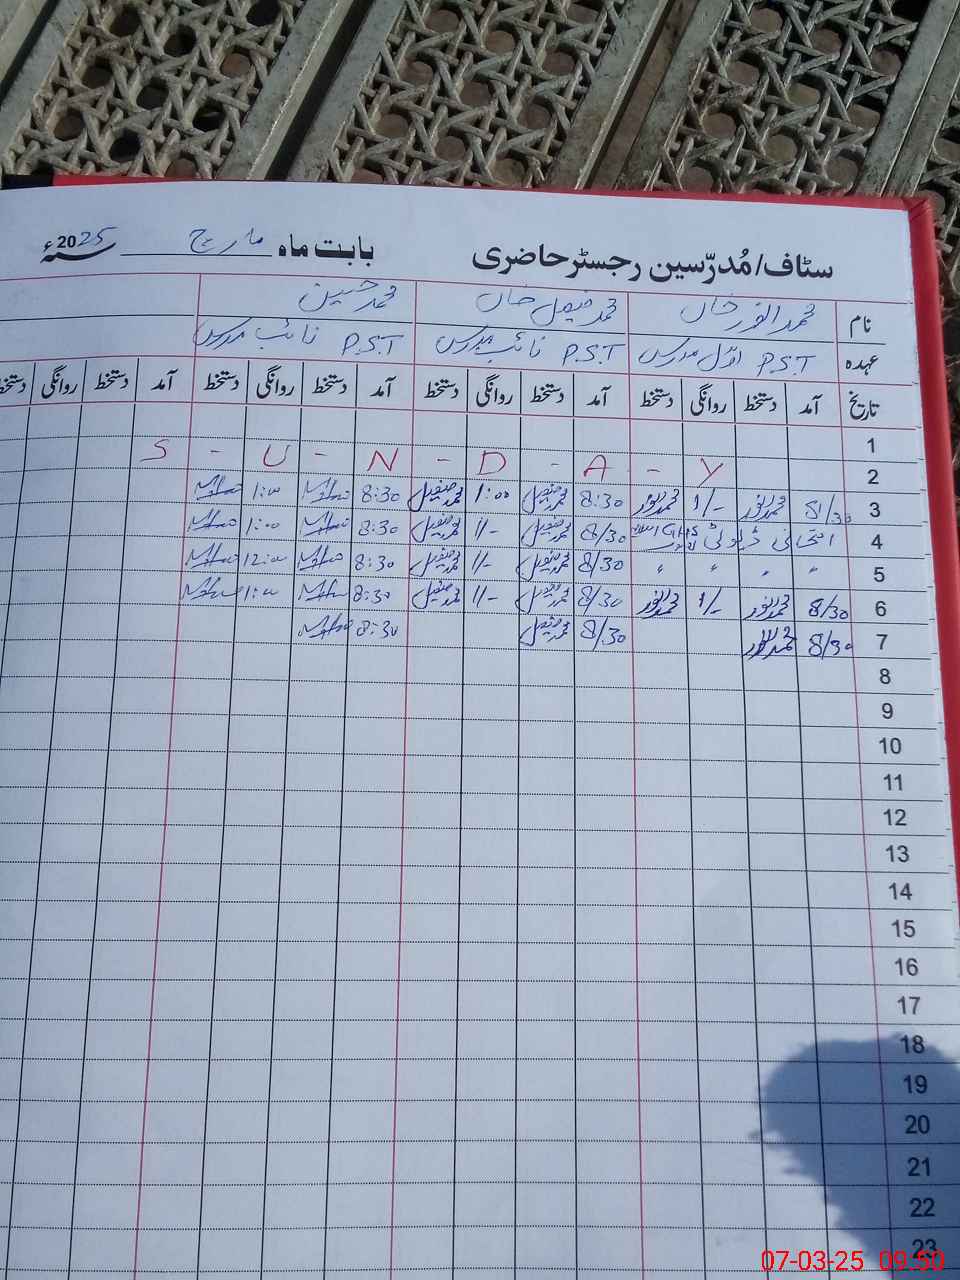 سٹاف/مُدرّسین رجسٹر حاضری بابت ماہ مارچ سنہ 2025ء
نام محمد انور خان محمد فیصل خان محمد حسین
عہدہ P.S.T اوّل مدرس P.S.T نائب مدرس P.S.T نائب مدرس
تاریخ آمد دستخط روانگی دستخط آمد دستخط روانگی دستخط آمد دستخط روانگی دستخط آمد دستخط روانگی دستخط
1
2 S - U - N - D - A - Y
3 8/30 محمد انور 1/- محمد انور 8:30 محمد فیصل 1:00 محمد فیصل 8:30 1:00
4 امتحانی ڈیوٹی GHS 8/30 محمد فیصل 1/- محمد فیصل 8:30 1:00
5 " " " " 8/30 محمد فیصل 1/- محمد فیصل 8:30 12:00
6 8/30 محمد انور 1/- محمد انور 8/30 محمد فیصل 1/- محمد فیصل 8:30 1:00
7 8/30 محمد انور 8/30 محمد فیصل 8:30
8
9
10
11
12
13
14
15
16
17
18
19
20
21
22
23
07-03-25 09:50